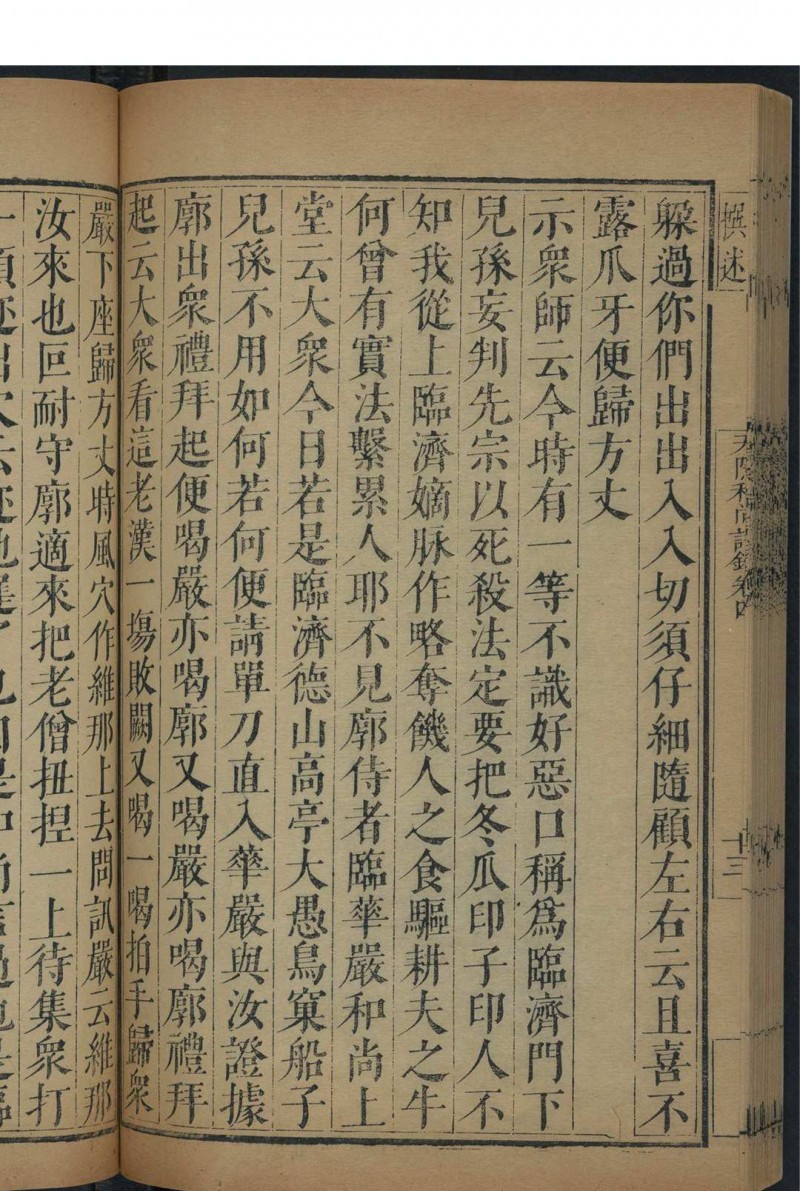 撰述
天隱和尚語錄卷四
十三
躱過你們出出入入切須仔細隨顧左右云且喜不
露爪牙便歸方丈
示衆師云今時有一等不識好惡口稱爲臨濟門下
兒孫妄判先宗以死殺法定要把冬瓜印子印人不
知我從上臨濟嫡脉作略奪饑人之食驅耕夫之牛
何曾有實法繫累人耶不見廓侍者臨華嚴和尚上
堂云大衆今日若是臨濟德山高亭大愚鳥窠船子
兒孫不用如何若何便請單刀直入華嚴與汝證據
廓出衆禮拜起便喝嚴亦喝廓又喝嚴亦喝廓禮拜
起云大衆看這老漢一塲敗闕又喝一喝拍手歸衆
嚴下座歸方丈時風穴作維那上去問訊嚴云維那
汝來也叵耐守廓適來把老僧扭捏一上待集衆打